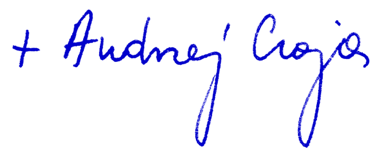 + Andrzej Czaja